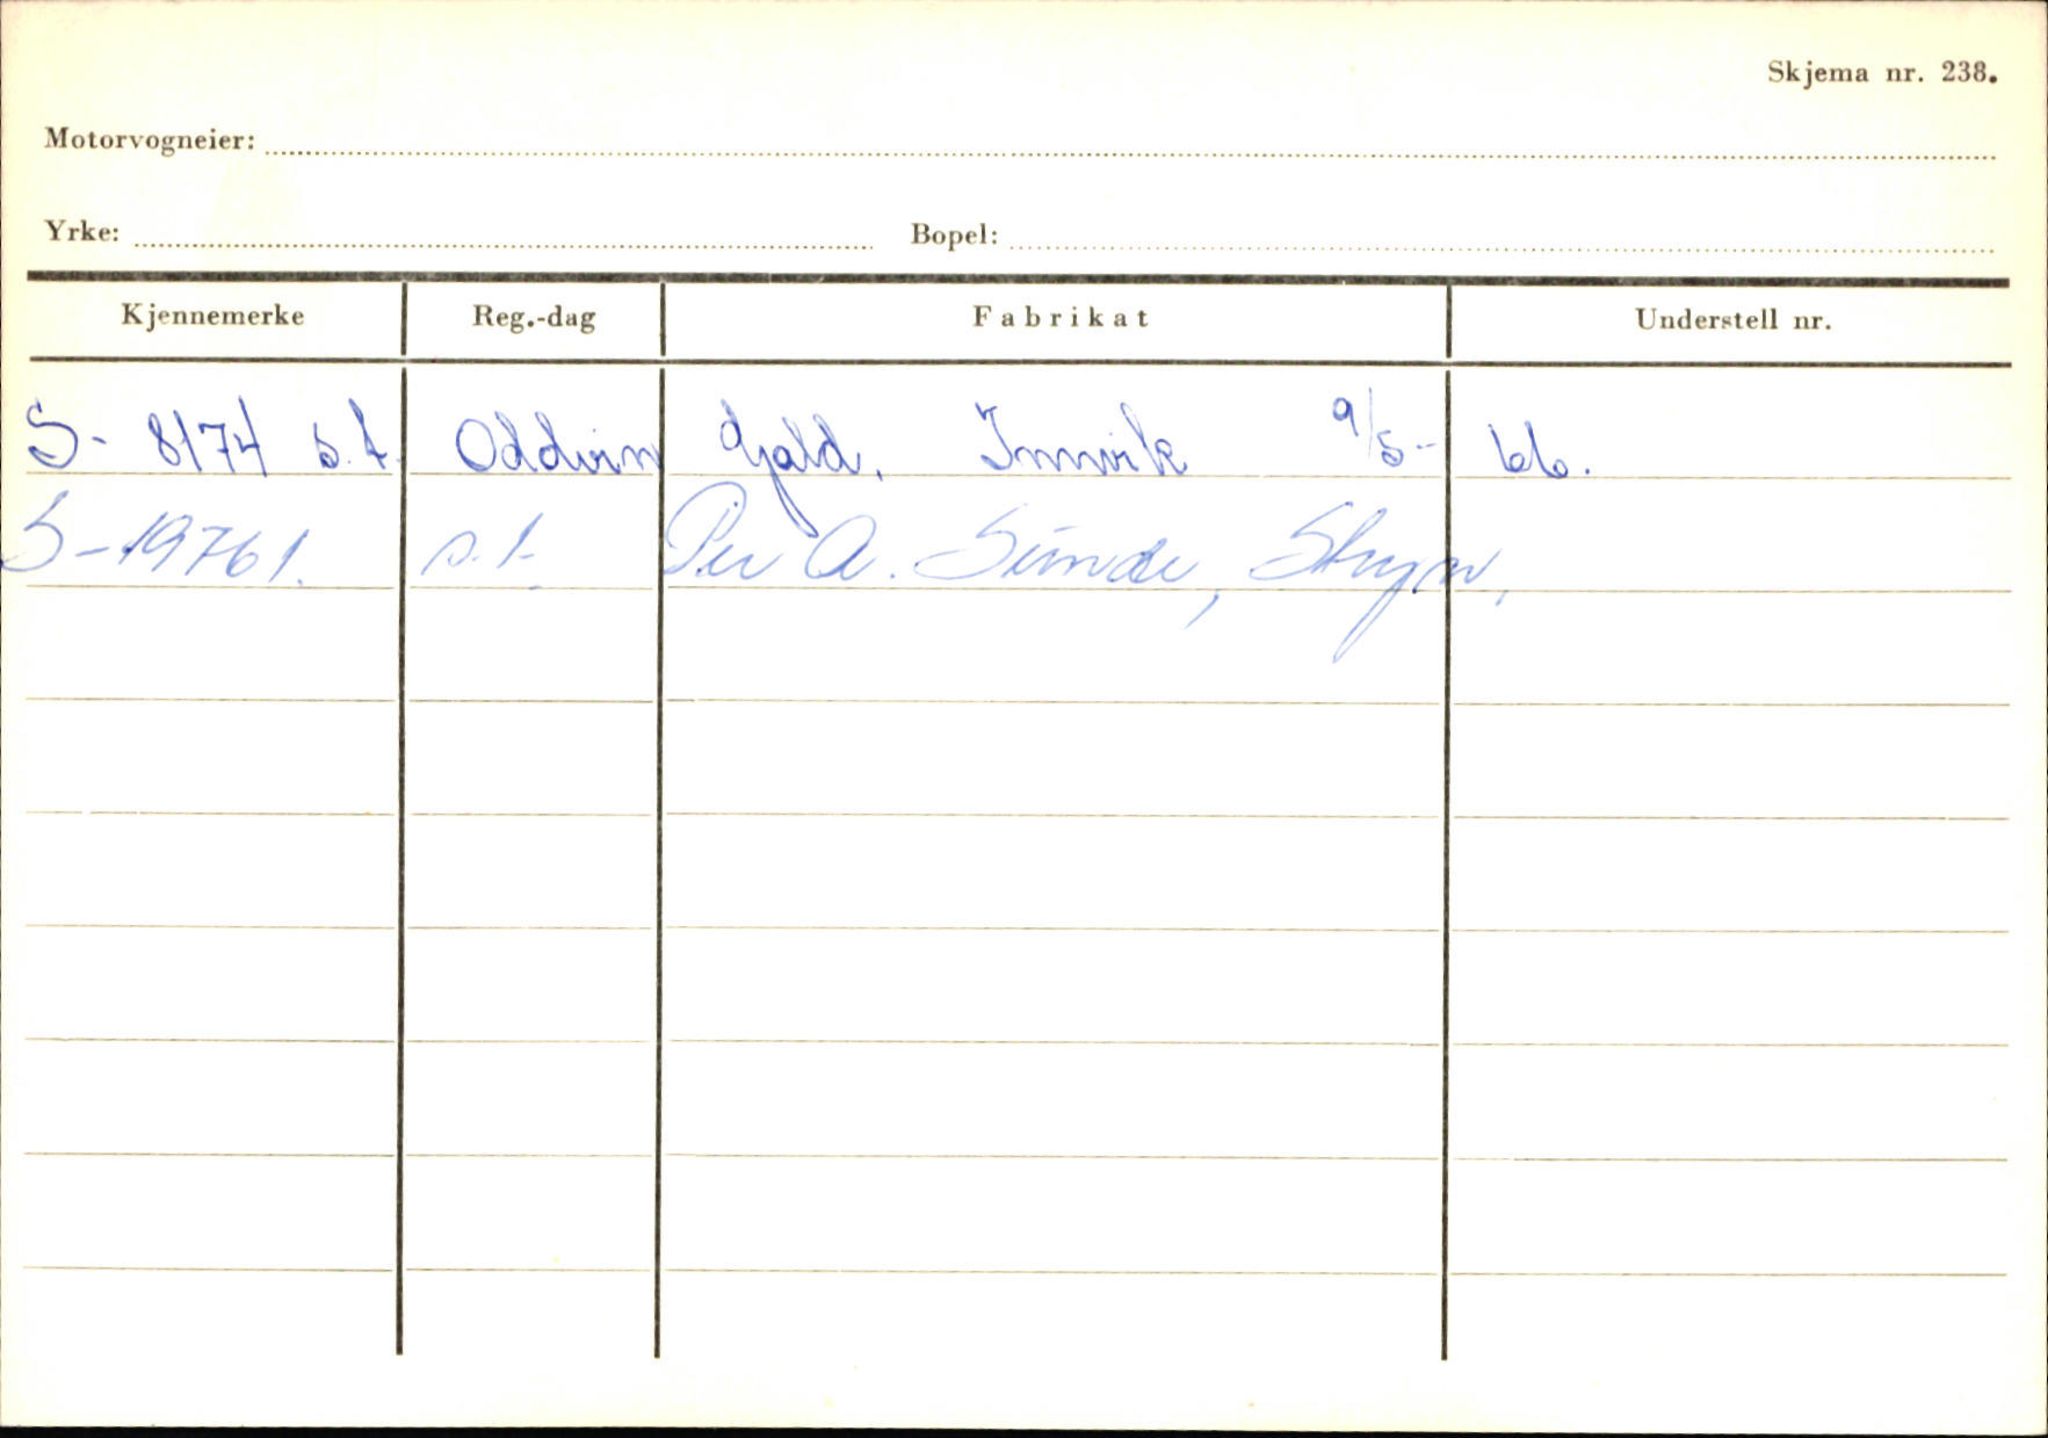 Skjema nr. 238.
Motorvogneier:
Yrke: Bopel:
Kjennemerke Reg.-dag Fabrikat Understell nr.
S- 8174 s.t. Oddvin Gald. Innvik 9/5- 66.
S-19761. s.t. Per A. Sunde, Stryn.